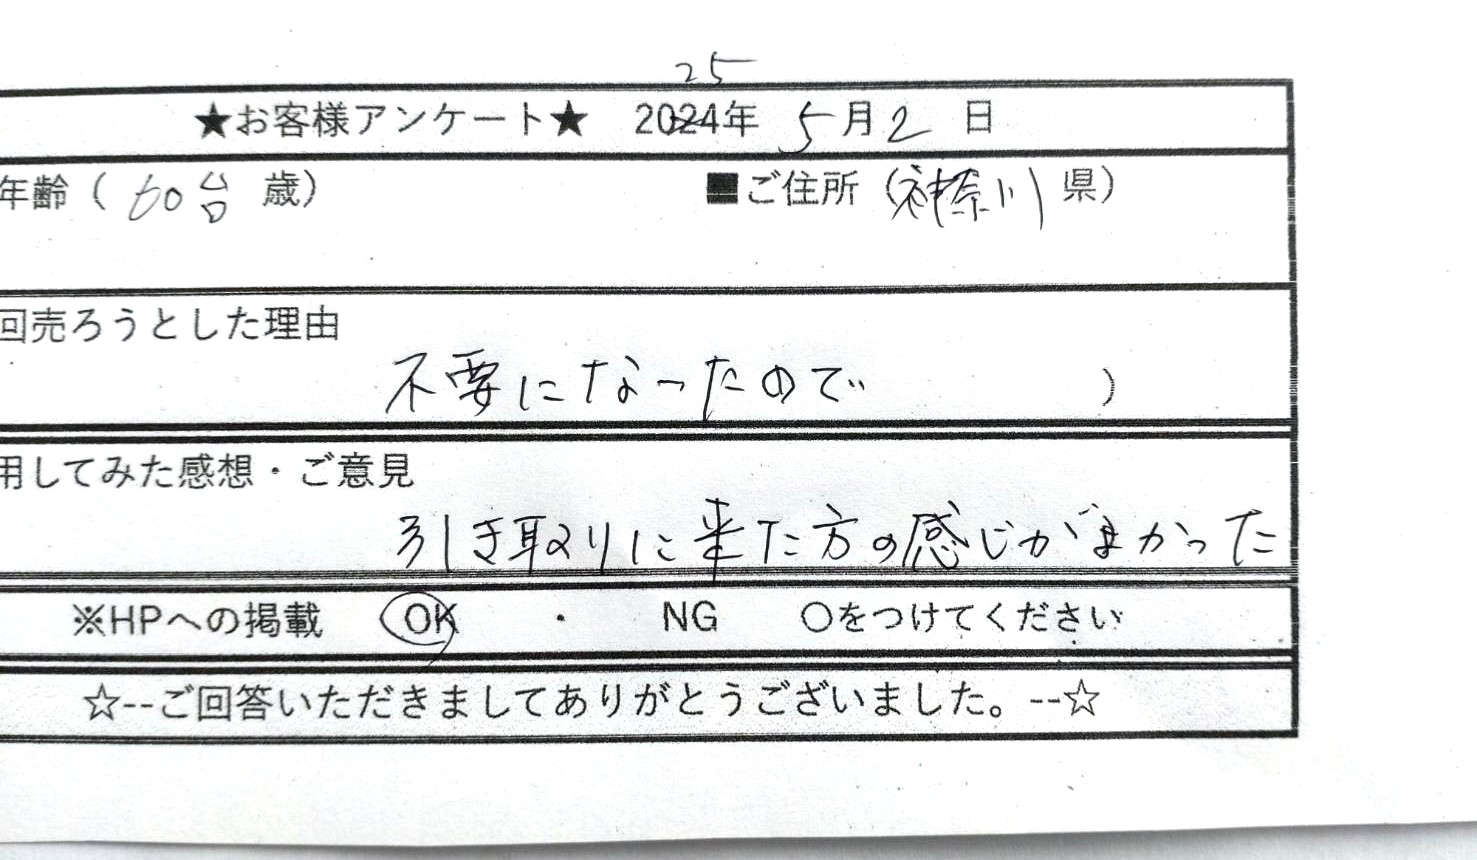 25
★お客様アンケート★ 2024年 5月2日
年齢（60台歳） ■ご住所（神奈川県）
回売ろうとした理由
不要になったので ）
用してみた感想・ご意見
引き取りに来た方の感じがよかった
※HPへの掲載 OK ・ NG ○をつけてください
☆--ご回答いただきましてありがとうございました。--☆